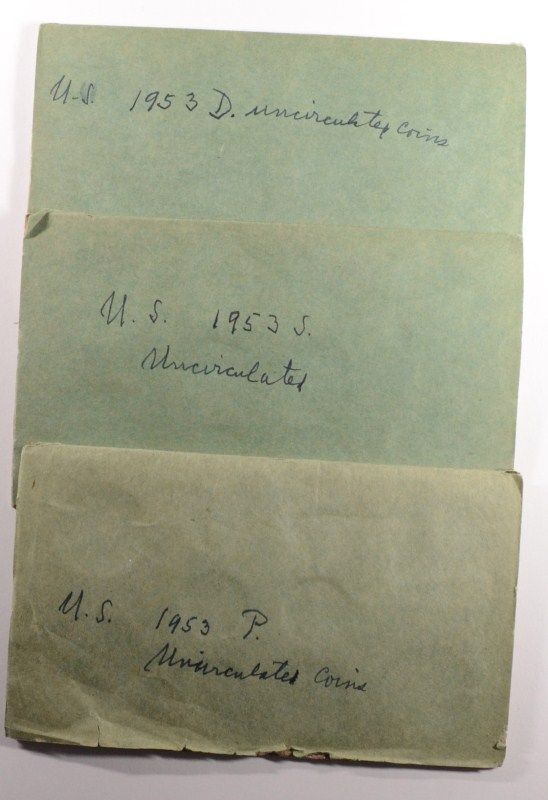 U.S. 1953 D. uncirculated coins
U.S. 1953 S.
Uncirculated
U.S. 1953 P.
Uncirculated Coins